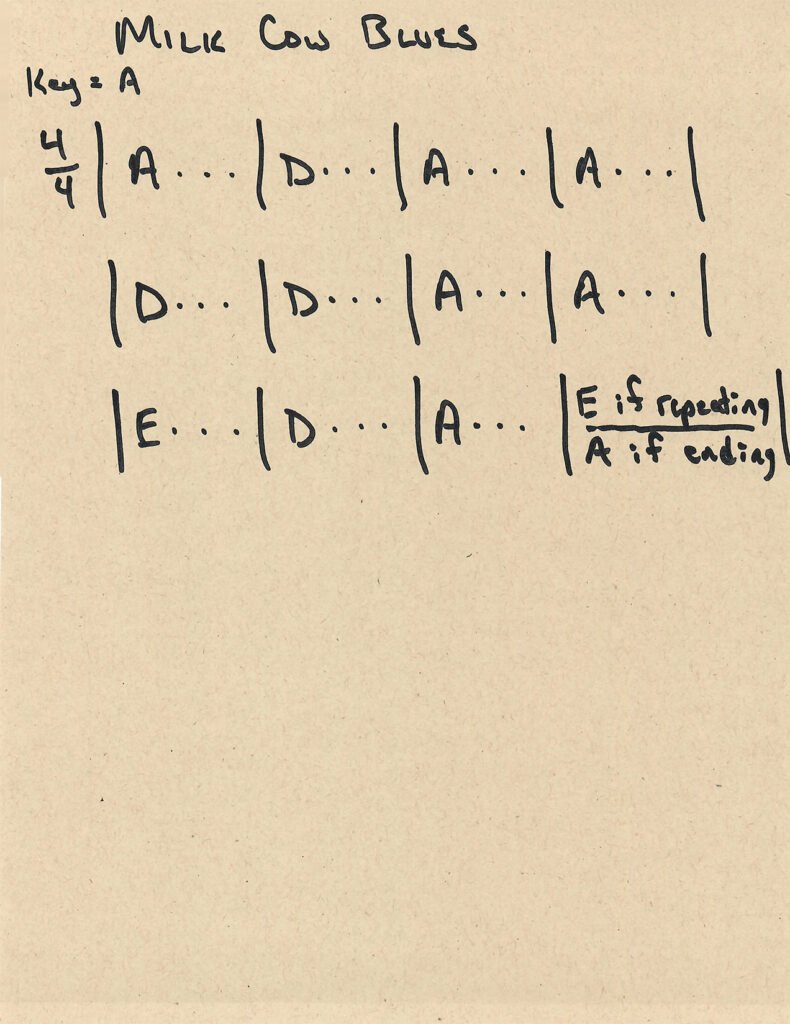 MILK COW BLUES
Key = A
4/4 | A ... | D ... | A ... | A ... |
| D ... | D ... | A ... | A ... |
| E ... | D ... | A ... | E if repeating / A if ending |